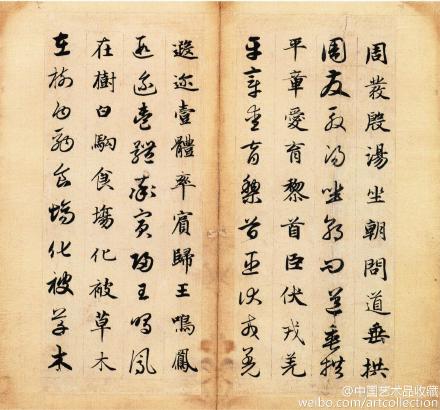 周發殷湯坐朝問道垂拱
周發殷湯坐朝問道垂拱
平章愛育黎首臣伏戎羌
平章愛育黎首臣伏戎羌
遐迩壹體率賓歸王鳴鳳
遐迩壹體率賓歸王鳴鳳
在樹白駒食場化被草木
在樹白駒食場化被草木
@中国艺术品收藏
weibo.com/artcollection